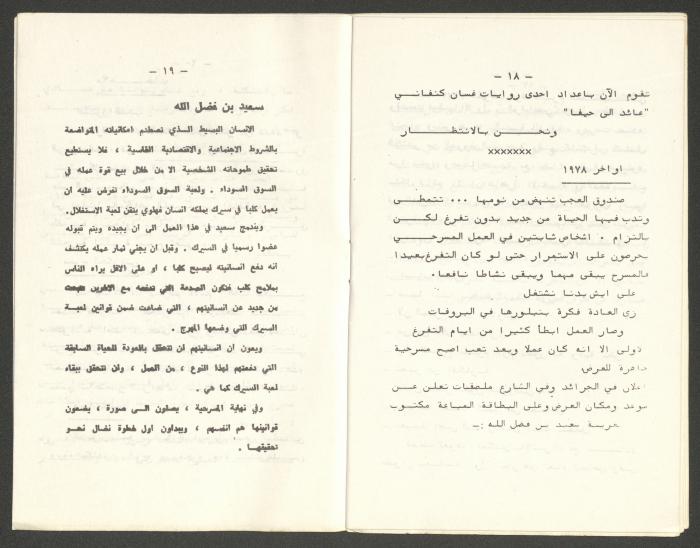 - ١٨ -
تقوم الآن باعداد احدى روايات غسان كنفاني
"عائد الى حيفا"
ونحــن بـالانتظـــار
×××××××
اواخر ١٩٧٨
صندوق العجب تنهض من نومها ... تتمطــى
وتدب فيها الحياة من جديد بدون تفرغ لكــن
بالتزام . اشخاص شابتين في العمل المسرحــي
يحرصون على الاستمرار حتى لو كان التفرغ بعيدا
فالمسرح يبقى مهما ويبقى نشاطا نافعا.
على ايش بدنا نشتغل
زي العادة فكرة بنبلورها في البروفات
وصار العمل ابطأ كثيرا من ايام التفرغ
لاولى الا انه كان عملا وبعد تعب اصبح مسرحية
جاهزة للعرض.
اعلان في الجرائد وفي الشارع ملصقات تعلن عــن
موعد ومكان العرض وعلى البطاقة المباعة مكتوب
مسرحية سعيد بن فضل الله :-
- ١٩ -
سعيد بن فضل الله
الانسان البسيط الـذي تصطدم امكانياته المتواضعة
بالشروط الاجتماعية والاقتصادية القاسية ، فلا يستطيع
تحقيق طموحاته الشخصية الا من خلال بيع قوة عمله في
السوق السوداء . ولعبة السوق السوداء تفرض عليه ان
يعمل كلبا في سيرك يملكه انسان فهلوي يتقن لعبة الاستغلال.
ويندمج سعيد في هذا العمل الى ان يجيده ويتم قبوله
عضوا رسميا في السيرك . وقبل ان يجني ثمار عمله يكتشف
انه دفع انسانيته ليصبح كلبا ، او على الاقل يراه الناس
بملامح كلب فتكون الصدمة التي تدفعه مع الاخرين للبحث
من جديد عن انسانيتهم ، التي ضاعت ضمن قوانين لعبــة
السيرك التي وضعها المهرج .
ويعون ان انسانيتهم لن تتحقق بالعودة للحياة السابقة
التي دفعتهم لهذا النوع ، من العمل ، ولن تتحقق ببقاء
لعبة السيرك كما هي .
وفي نهاية المسرحية ، يصلون الـى صورة ، يضعـون
قوانينها هم انفسهم ، ويبداون اول خطوة نضال نحـو
تحقيقهـا .